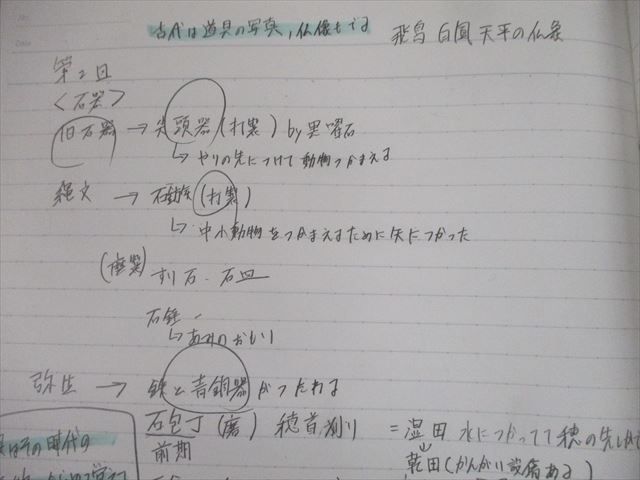 古代は道具の写真，仏像もでる
飛鳥 白鳳 天平の仏像
第2回
〈石器〉
旧石器 → 尖頭器（打製）by黒曜石
↳ やりの先につけて動物つかまえる
縄文 → 石鏃（打製）
↳ 中小動物をつかまえるために矢につかった
（磨製）すり石・石皿
石錘
↳ あみのおもり
弥生 → 鉄と青銅器がつたわる
石包丁（磨）穂首刈り = 湿田 水につかってて穂の先しか
前期
乾田（かんがい設備ある）
はその時代の